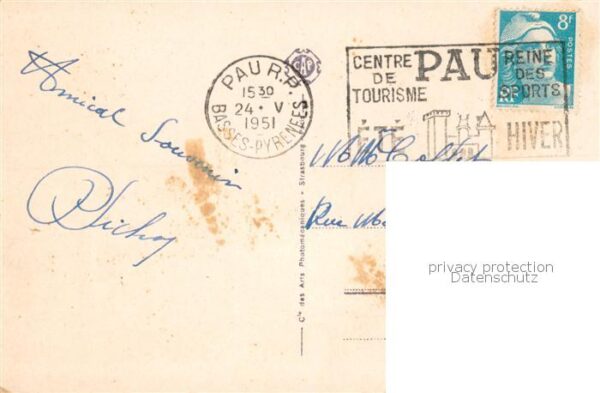 Amical Souvenir
PAU R.P.
15 30
24 - V
1951
BASSES-PYRENEES
CENTRE
DE
TOURISME
PAU
REINE
DES
SPORTS
ÉTÉ
HIVER
8F
POSTES
RF
Rue
Cie des Arts Photomécaniques - Strasbourg
privacy protection
Datenschutz